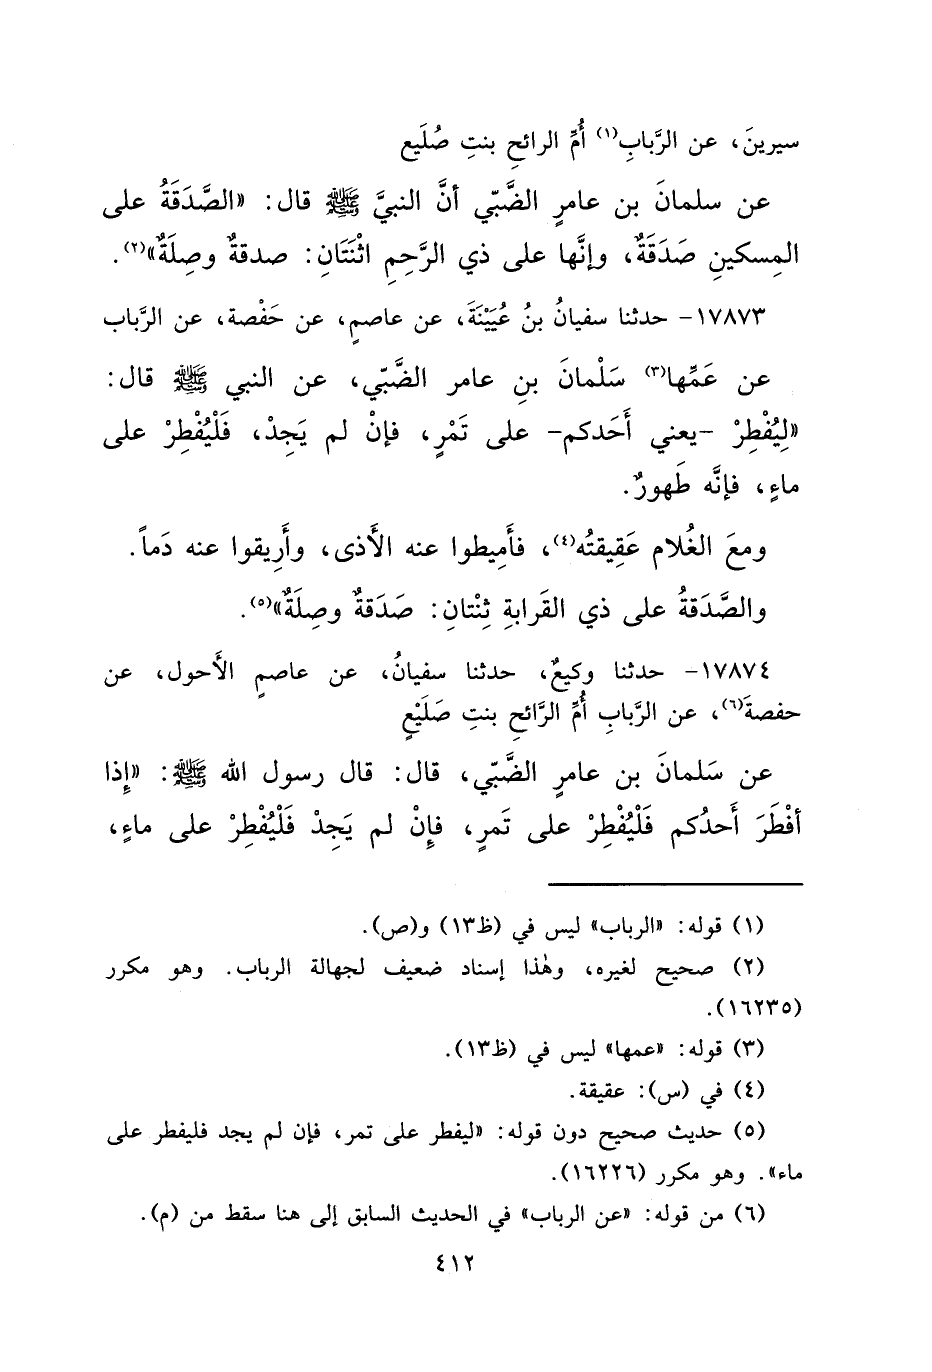 سيرينَ، عن الرَّبابِ(١) أُمِّ الرائحِ بنتِ صُلَيع
عن سلمانَ بن عامرٍ الضَّبّي أنَّ النبيَّ ﷺ قال: «الصَّدَقَةُ على
المِسكينِ صَدَقَةٌ، وإنَّها على ذي الرَّحِمِ اثْنَتَانِ: صدقةٌ وصِلَةٌ»(٢).
١٧٨٧٣- حدثنا سفيانُ بنُ عُيَيْنَةَ، عن عاصمٍ، عن حَفْصة، عن الرَّباب
عن عَمِّها(٣) سَلْمانَ بنِ عامر الضَّبّي، عن النبي ﷺ قال:
«لِيُفْطِرْ -يعني أَحَدكم- على تَمْرٍ، فإنْ لم يَجِدْ، فَلْيُفْطِرْ على
ماءٍ، فإنَّه طَهورٌ.
ومعَ الغُلام عَقِيقتُه(٤)، فأَمِيطوا عنه الأَذى، وأَرِيقوا عنه دَماً.
والصَّدَقةُ على ذي القَرابةِ ثِنْتانِ: صَدَقةٌ وصِلَةٌ»(٥).
١٧٨٧٤- حدثنا وكيعٌ، حدثنا سفيانُ، عن عاصمٍ الأَحول، عن
حفصةَ(٦)، عن الرَّبابِ أُمِّ الرَّائحِ بنتِ صَلَيْعٍ
عن سَلمانَ بن عامرٍ الضَّبّي، قال: قال رسول الله ﷺ: «إِذا
أفْطَرَ أَحدُكم فَلْيُفْطِرْ على تَمرٍ، فإِنْ لم يَجِدْ فَلْيُفْطِرْ على ماءٍ،
(١) قوله: «الرباب» ليس في (ظ١٣) و(ص).
(٢) صحيح لغيره، وهٰذا إسناد ضعيف لجهالة الرباب. وهو مكرر
(١٦٢٣٥).
(٣) قوله: «عمها» ليس في (ظ١٣).
(٤) في (س): عقيقة.
(٥) حديث صحيح دون قوله: «ليفطر على تمر، فإن لم يجد فليفطر على
ماء». وهو مكرر (١٦٢٢٦).
(٦) من قوله: «عن الرباب» في الحديث السابق إلى هنا سقط من (م).
٤١٢